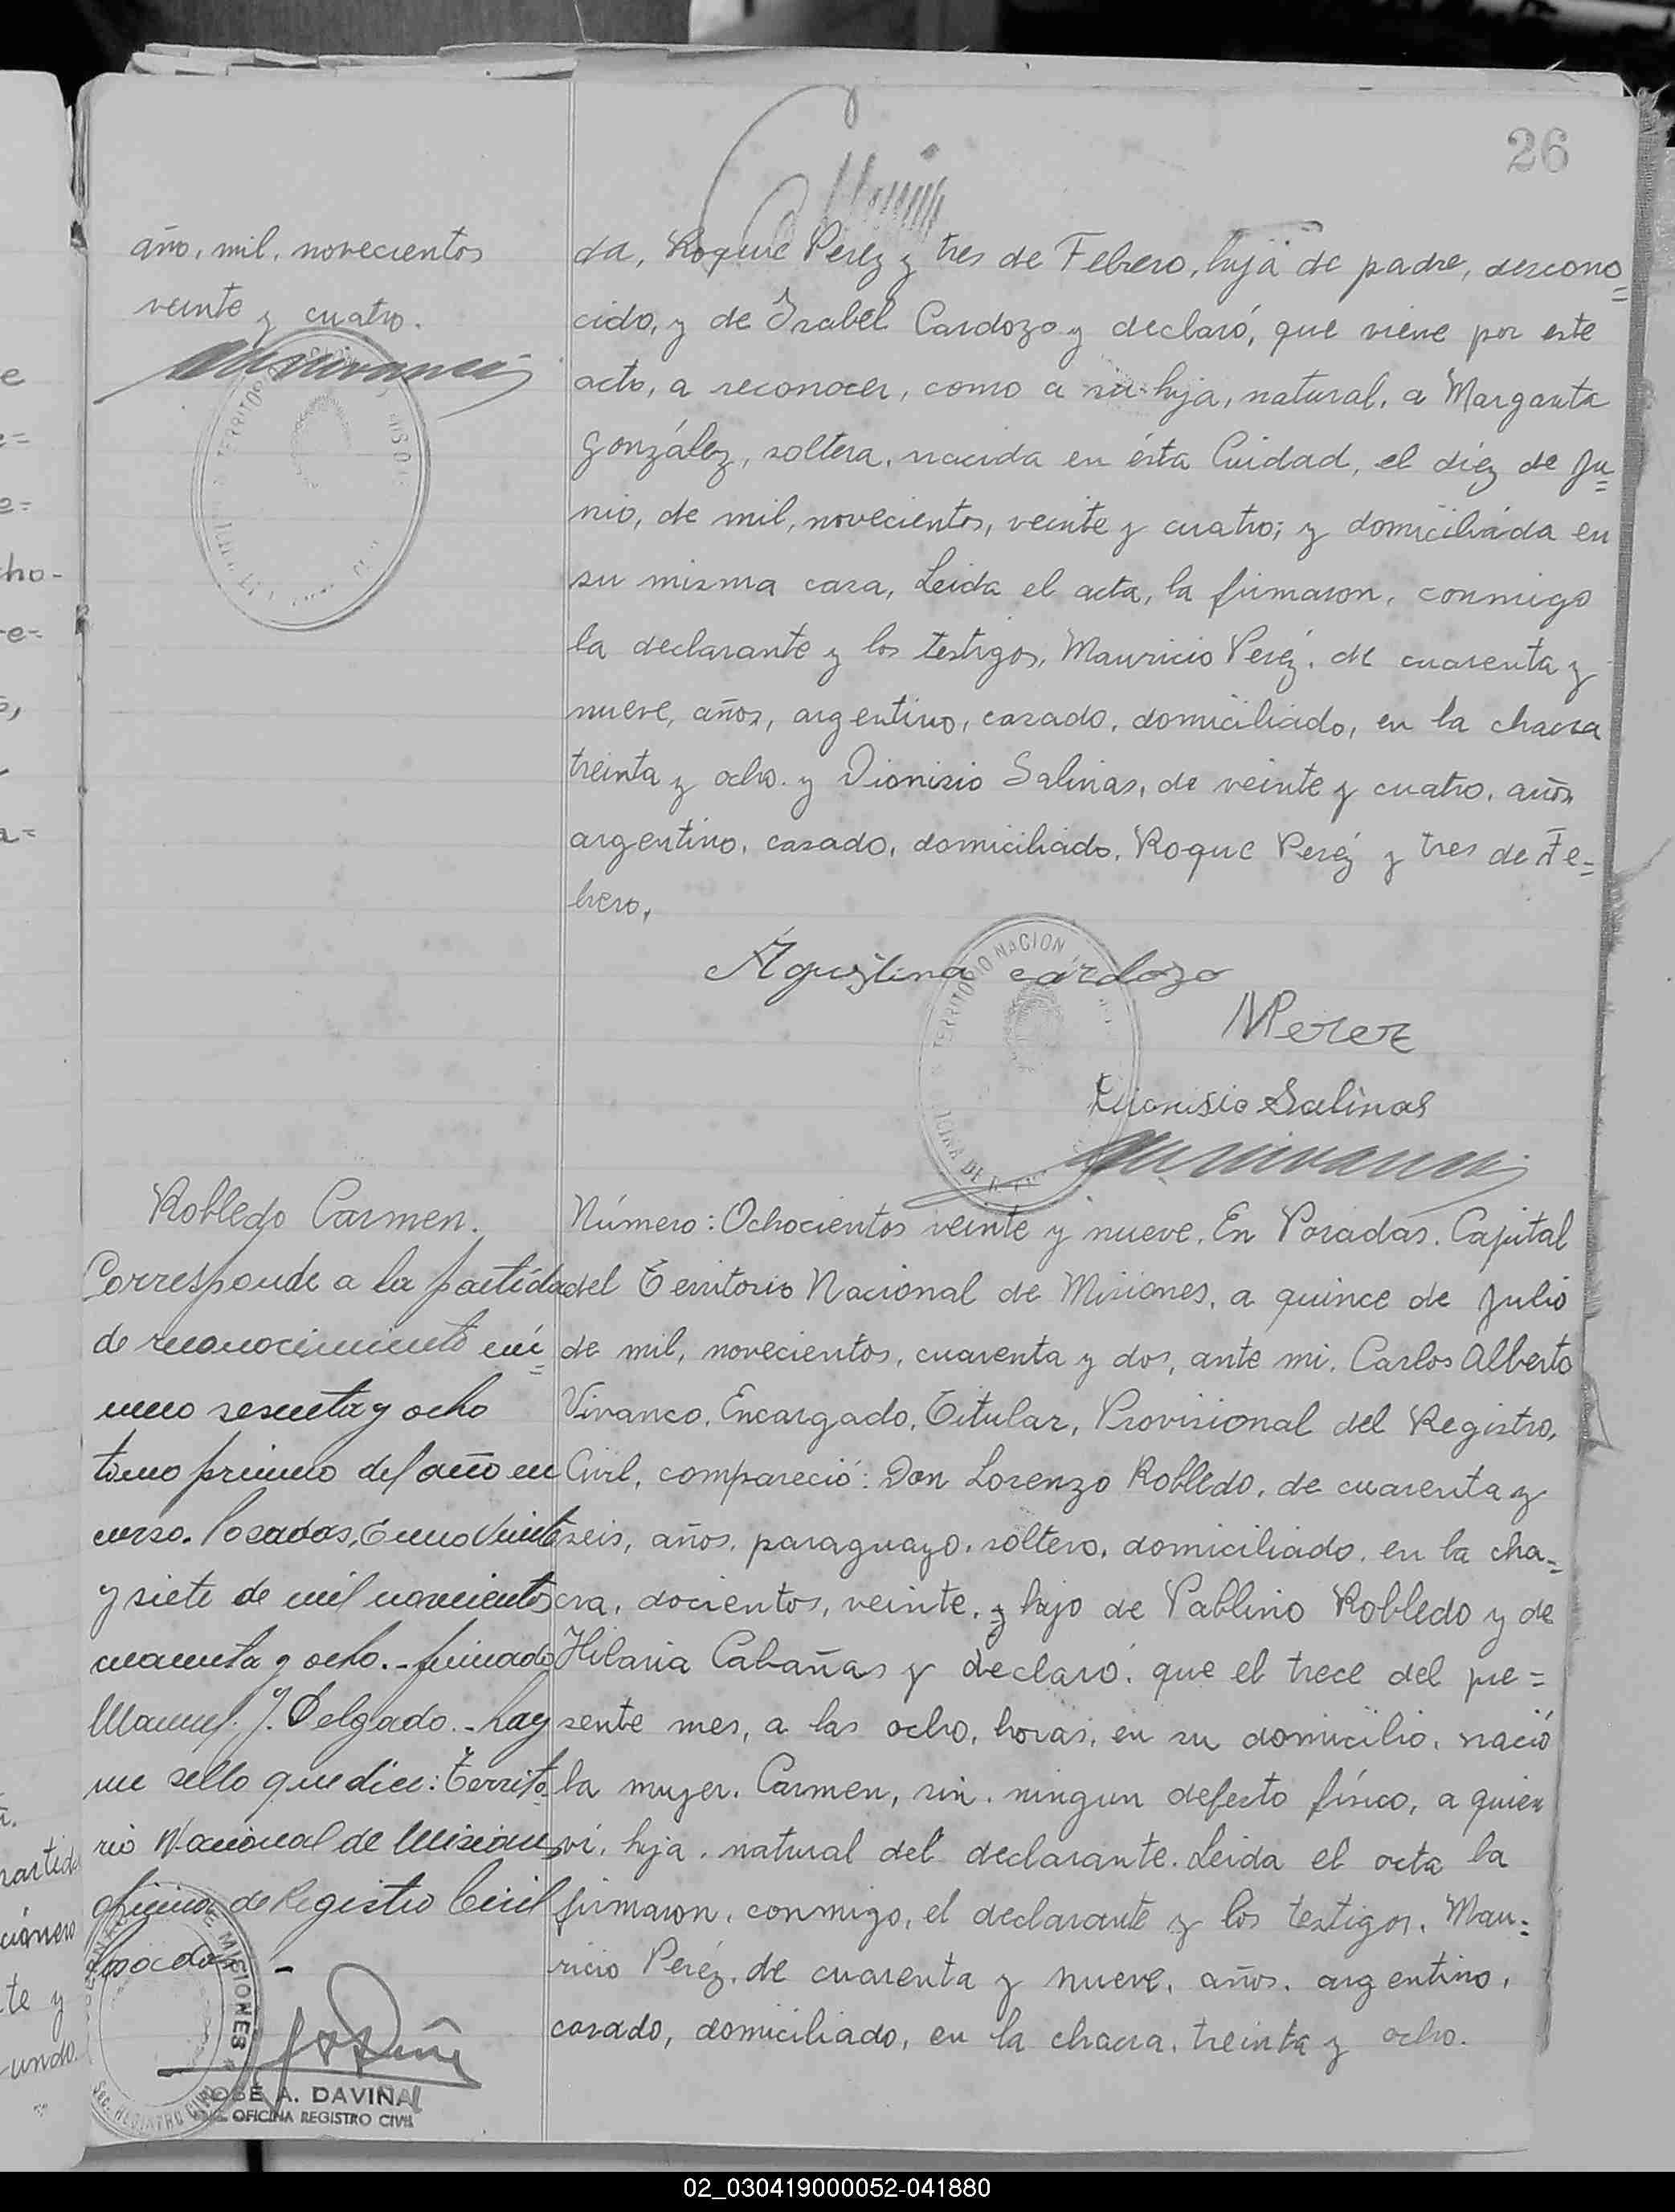 26
año, mil, novecientos
veinte y cuatro.
da, Roque Perez y tres de Febrero, hija de padre, descono=
cido, y de Isabel Cardozo y declaró, que viene por este
acto, a reconocer, como a su hija, natural, a Margarita
González, soltera, nacida en ésta Cuidad, el diéz de Ju=
nio, de mil, novecientos, veinte y cuatro; y domiciliada en
su misma casa, Leida el acta, la firmaron, conmigo
la declarante y los testigos, Mauricio Peréz, de cuarenta y
nueve, años, argentino, casado, domiciliado, en la chacra
treinta y ocho. y Dionisio Salinas, de veinte y cuatro, años
argentino, casado, domiciliado, Roque Peréz y tres de Fe=
brero,
Agustina cardozo
MPerez
Dionisio Salinas
TERRITORIO NACION
Robledo Carmen.
Corresponde a la partida
de reconocimiento nú=
mero sesenta y ocho
tomo primero del año en
curso. Posadas, Enero veinte
y siete de mil novecientos
cuarenta y ocho.- firmado
Manuel J. Delgado.- hay
un sello que dice: Territo=
rio Nacional de Misiones
oficina de Registro Civil
Posadas -
MISIONES
REGISTRO CIVIL
JOSÉ A. DAVIÑA
OFICINA REGISTRO CIVIL
Número: Ochocientos veinte y nueve, En Posadas. Capital
del Territorio Nacional de Misiones, a quince de Julio
de mil, novecientos, cuarenta y dos, ante mi, Carlos Alberto
Vivanco, Encargado, Titular, Provisional del Registro,
Civil, compareció: Don Lorenzo Robledo, de cuarenta y
seis, años, paraguayo, soltero, domiciliado, en la cha=
cra, docientos, veinte, y hijo de Pablino Robledo y de
Hilaria Cabañas y declaró, que el trece del pre=
sente mes, a las ocho, horas, en su domicilio, nació
la mujer, Carmen, sin, ningun defecto físico, a quien
ví, hija, natural del declarante. Leida el acta la
firmaron, conmigo, el declarante y los testigos, Mau=
ricio Peréz, de cuarenta y nueve, años, argentino,
casado, domiciliado, en la chacra, treinta y ocho.
02_030419000052-041880